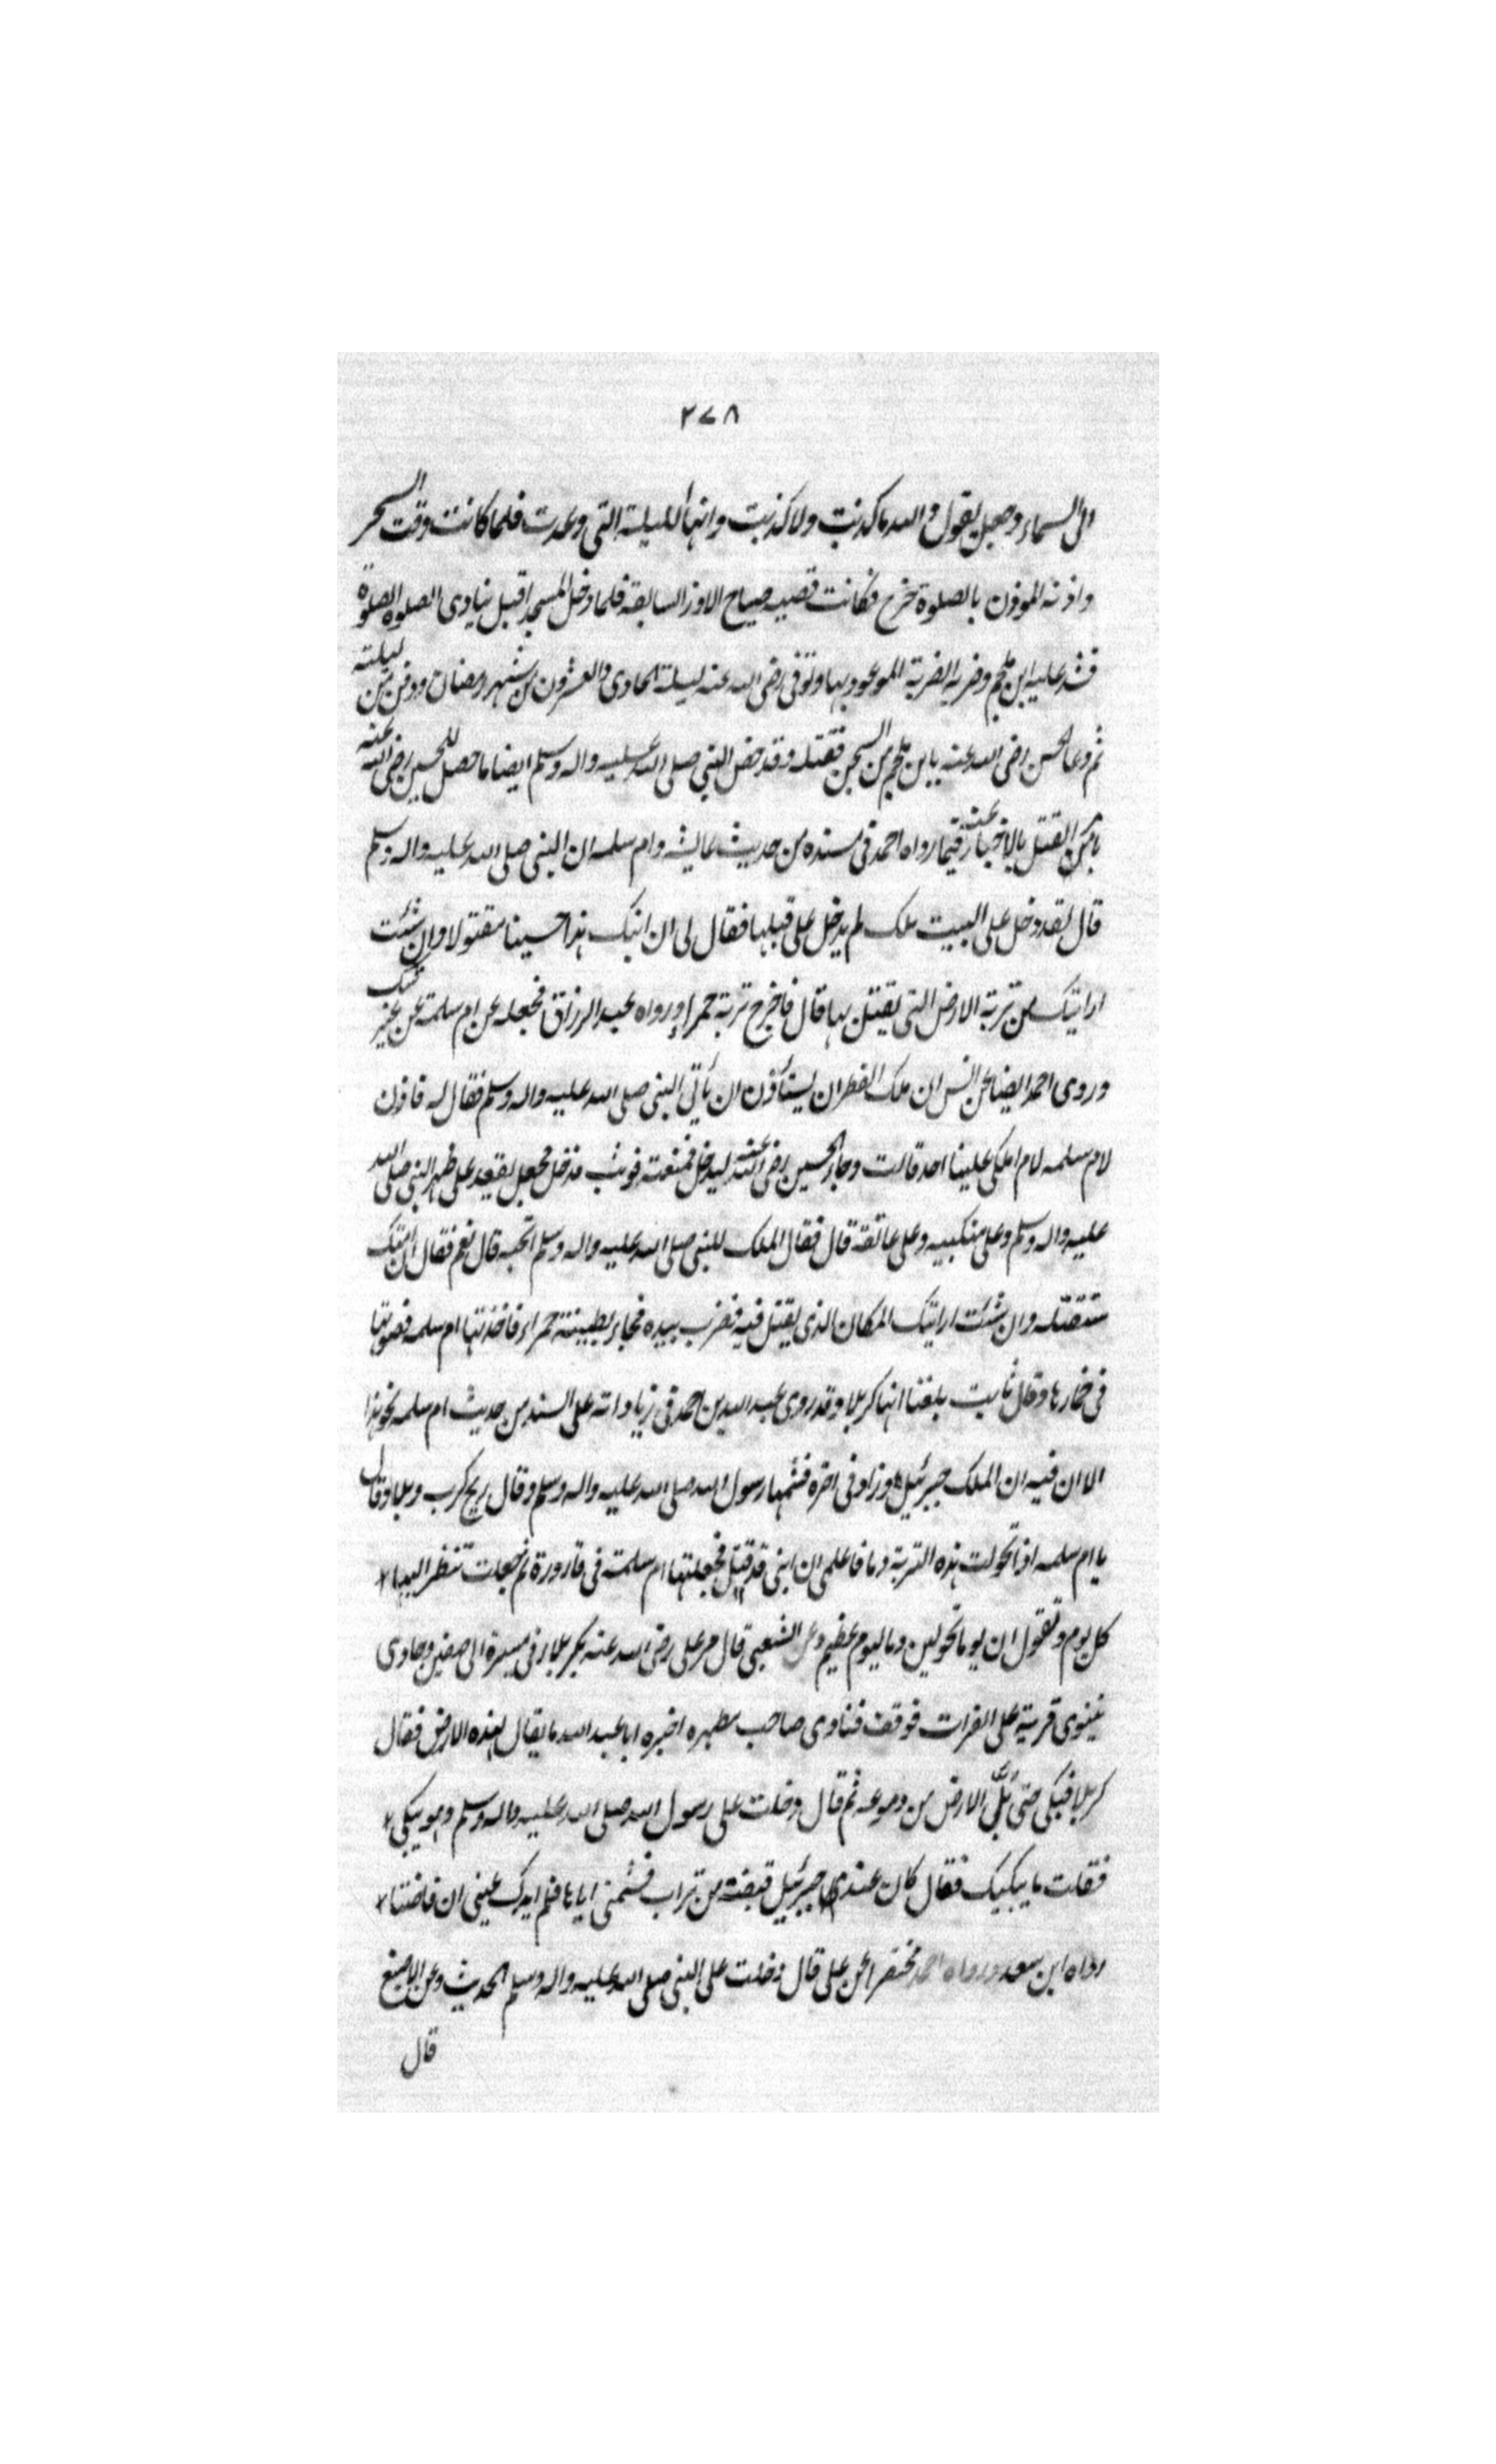 ٢٧٨
الى السماء وجعل يقول والله ما كذبت ولا كذبت وانها الليلة التى وعدت فلما كانت وقت السحر
واذنه الموذن بالصلوة خرج فكانت قصيه صياح الاوز السابقة فلما دخل المسجد اقبل ينادى الصلوة الصلوة
فشد عليه ابن ملجم وضربه الضربة الموعود بها وتوفى رضى الله عنه ليلة الحادى والعشرون من شهر رمضان ودفن من ليلته
ثم دعا الحسن رضى الله عنه بابن ملجم من السجن فقتله وقد خص النبى صلى الله عليه واله وسلم ايضا ما حصل للحسين رضى الله عنه
من القتل بالاخبار عنه فيما رواه احمد فى مسنده من حديث عايشة وام سلمه ان النبى صلى الله عليه واله وسلم
قال لقد دخل على البيت ملك لم يدخل على قبلها فقال لى ان ابنك هذا حسينا مقتولا وان شئت
اراتيك من تربة الارض التى يقتل بها قال فاخرج تربة حمراء ورواه عبد الرزاق فجعله عن ام سلمة عن غير شك
وروى احمد ايضا عن انس ان ملك القطر ان يستأذن ان يأتى النبى صلى الله عليه واله وسلم فقال له فاذن
لام سلمه لام املكى علينا احد قالت وجاء الحسين رضى الله عنه ليدخل فمنعته فوثب فدخل فجعل يقعد على ظهر النبى صلى الله
عليه واله وسلم وعلى منكبيه وعلى عاتقه قال فقال الملك للنبى صلى الله عليه واله وسلم اتحبه قال نعم فقال ان امتك
ستقتله وان شئت اراتيك المكان الذى يقتل فيه فضرب بيده فجاء بطينة حمراء فاخذتها ام سلمه فصرتها
فى خمارها وقال ثابت بلغنا انها كربلا وقد روى عبد الله بن احمد فى زياداته على المسند من حديث ام سلمه نحو هذا
الا ان فيه ان الملك جبرئيل وزاد فى اخره فشمها رسول الله صلى الله عليه واله وسلم وقال ريح كرب وبلا وقال
يا ام سلمه اذا تحولت هذه التربة دما فاعلمى ان ابنى قد قتل فجعلتها ام سلمة فى قارورة ثم جعلت تنظر اليها
كل يوم وتقول ان يوما تحولين دما ليوم عظيم وعن الشعبى قال مر على رضى الله عنه بكربلاء فى مسيره الى صفين وحاذى
نينوى قرية على الفرات فوقف فنادى صاحب مطهره اخبره ابا عبد الله ما يقال لهذه الارض فقال
كربلا فبكى حتى بلّ الارض من دموعه ثم قال دخلت على رسول الله صلى الله عليه واله وسلم وهو يبكى
فقلت ما يبكيك فقال كان عندى جبرئيل قبضة من تراب فشمنى اياها فلم املك عينى ان فاضتا
رواه ابن سعد ورواه احمد مختصرا عن على قال دخلت على النبى صلى الله عليه واله وسلم الحديث وعن الاصبغ
قال